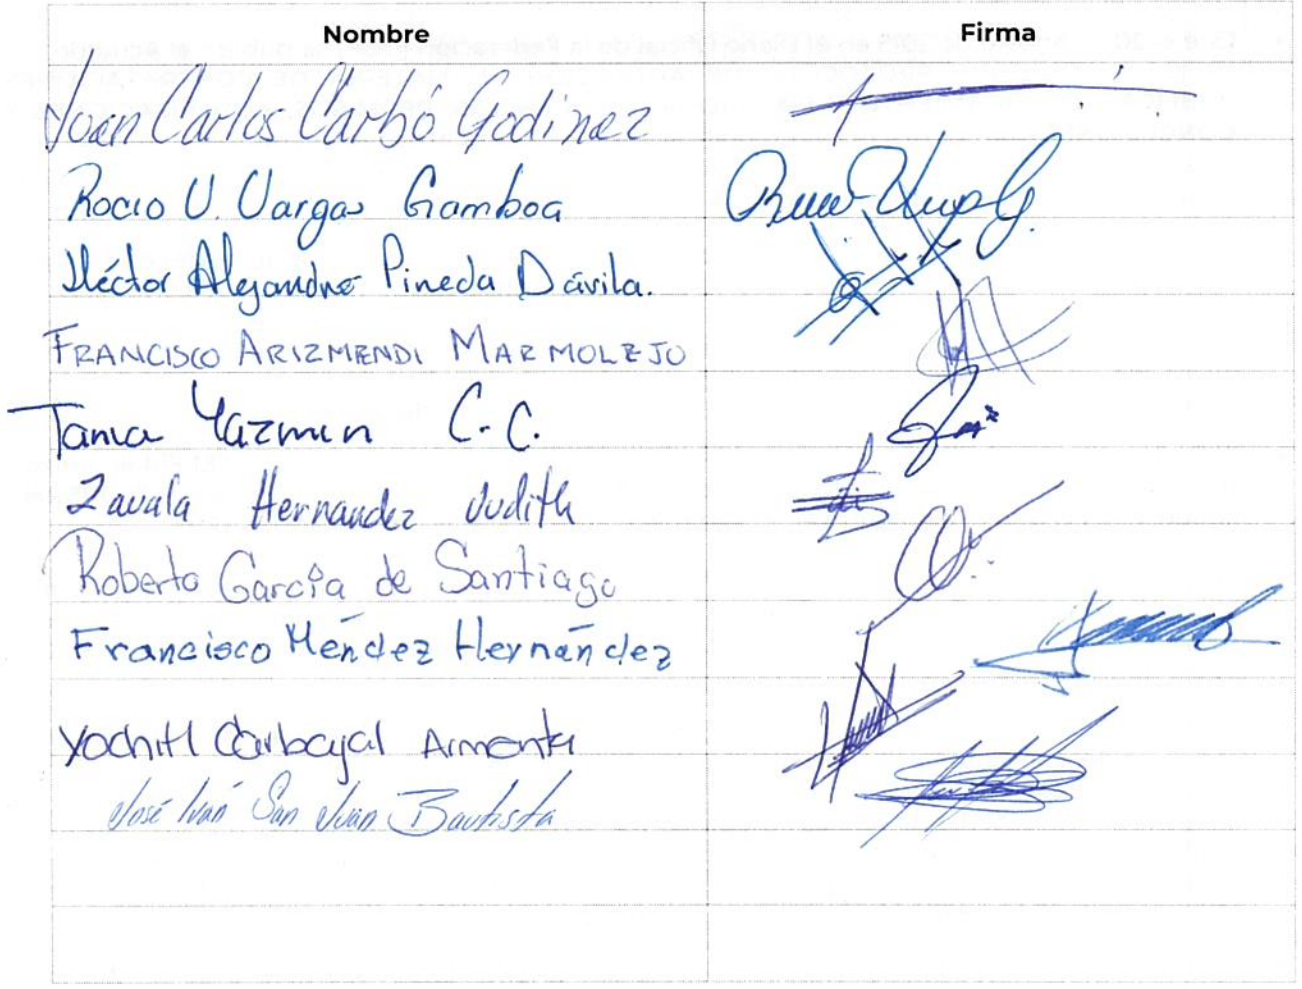 Nombre Firma
Juan Carlos Carbó Godinez
Rocio U. Vargas Gamboa
Héctor Alejandro Pineda Dávila.
FRANCISCO ARIZMENDI MARMOLEJO
Tania Yazmin C.C.
Zavala Hernandez Judith
Roberto García de Santiago
Francisco Méndez Hernández
Xochitl Carbajal Armenta
José Iván San Juan Bautista